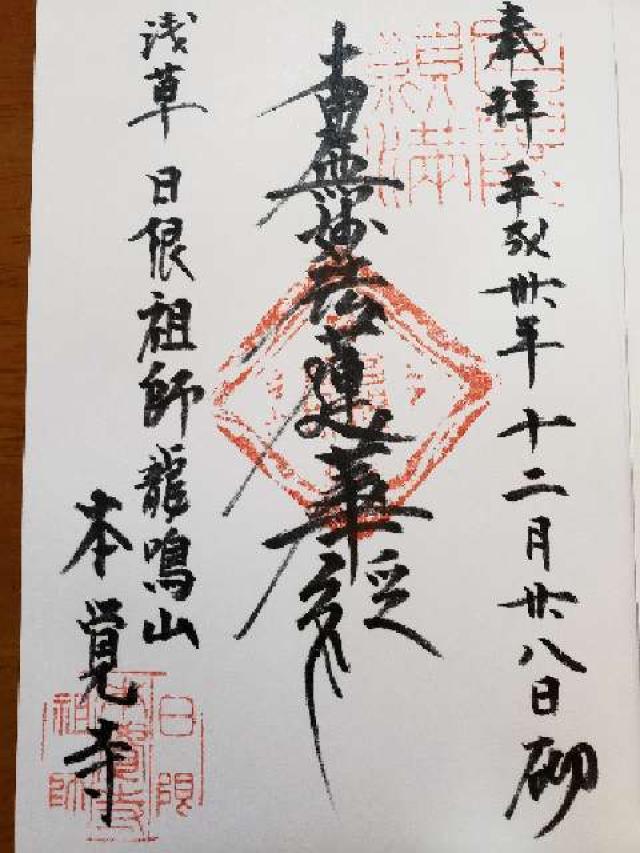 奉拝 平成卅年十二月廿八日 砌
南無妙法蓮華経
浅草 日限祖師 龍鳴山
本覚寺
日限
本覺寺
祖師